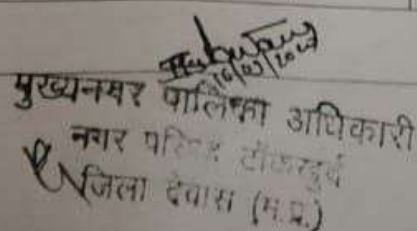 मुख्यनगर पालिका अधिकारी
नगर परिषद टोंकखुर्द
जिला देवास (म.प्र.)